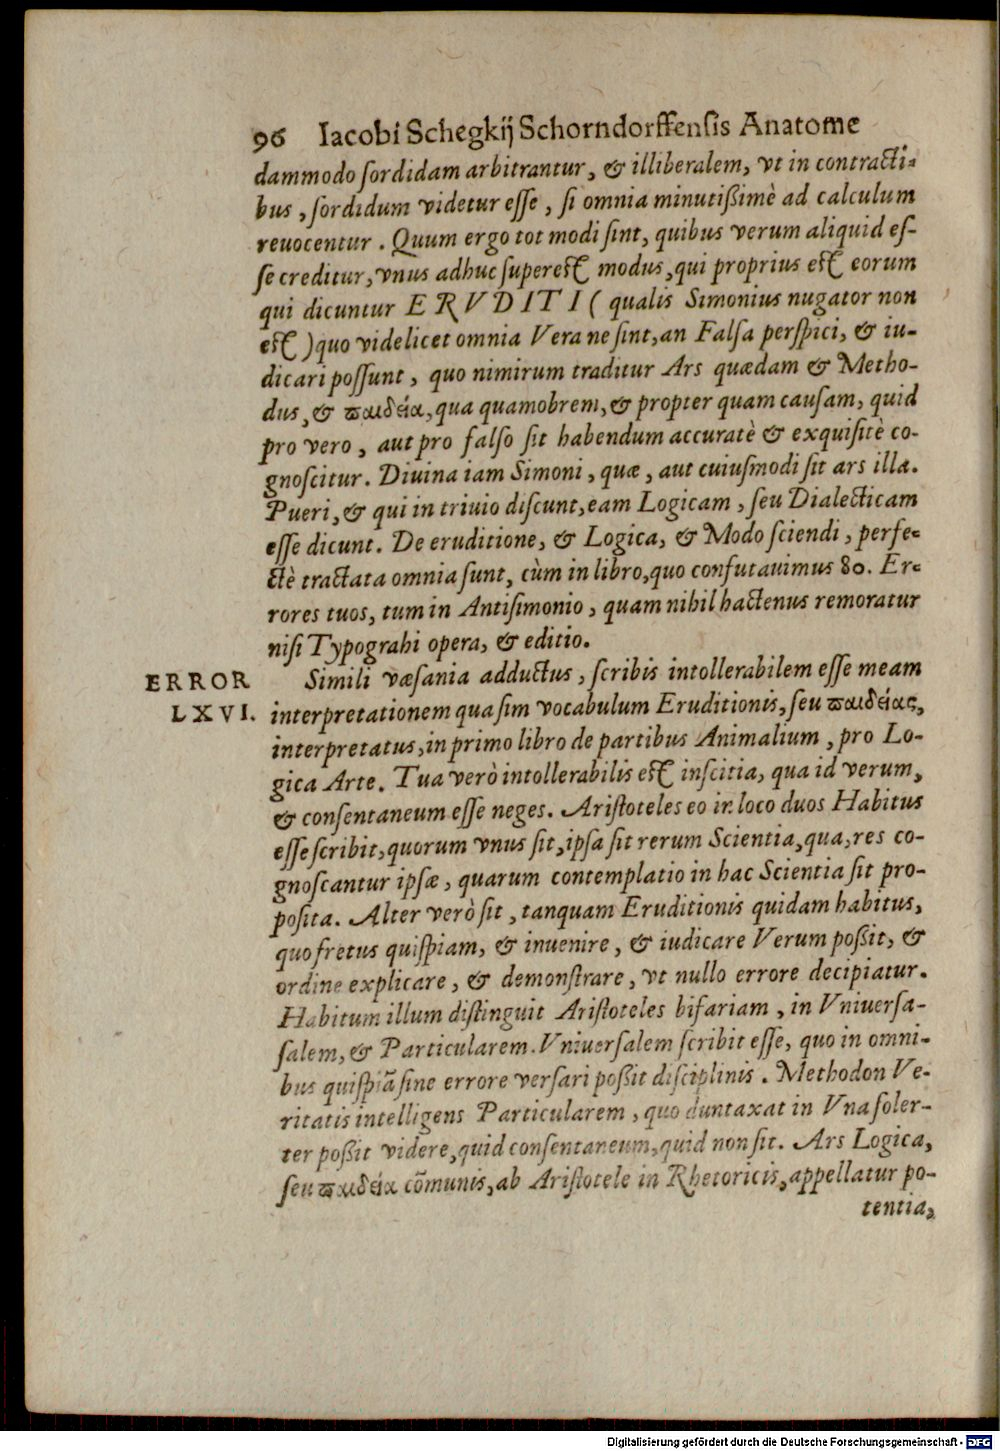 96 Iacobi Schegkij Schorndorffensis Anatome
dammodo sordidam arbitrantur, & illiberalem, vt in contracti-
bus, sordidum videtur esse, si omnia minutißimè ad calculum
reuocentur. Quum ergo tot modi sint, quibus verum aliquid es-
se creditur, vnus adhuc superest modus, qui proprius est eorum
qui dicuntur ERVDITI (qualis Simonius nugator non
est) quo videlicet omnia Vera ne sint, an Falsa perspici, & iu-
dicari possunt, quo nimirum traditur Ars quædam & Metho-
dus, & παιδεία, qua quamobrem, & propter quam causam, quid
pro vero, aut pro falso sit habendum accuratè & exquisitè co-
gnoscitur. Diuina iam Simoni, quæ, aut cuiusmodi sit ars illa.
Pueri, & qui in triuio discunt, eam Logicam, seu Dialecticam
esse dicunt. De eruditione, & Logica, & Modo sciendi, perfe-
ctè tractata omnia sunt, cùm in libro, quo confutauimus 80. Er-
rores tuos, tum in Antisimonio, quam nihil hactenus remoratur
nisi Typograhi opera, & editio.
ERROR
LXVI.
Simili væsania adductus, scribis intollerabilem esse meam
interpretationem qua sim vocabulum Eruditionis, seu παιδείας,
interpretatus, in primo libro de partibus Animalium, pro Lo-
gica Arte. Tua verò intollerabilis est inscitia, qua id verum,
& consentaneum esse neges. Aristoteles eo in loco duos Habitus
esse scribit, quorum vnus sit, ipsa sit rerum Scientia, qua, res co-
gnoscantur ipsæ, quarum contemplatio in hac Scientia sit pro-
posita. Alter verò sit, tanquam Eruditionis quidam habitus,
quo fretus quispiam, & inuenire, & iudicare Verum poßit, &
ordine explicare, & demonstrare, vt nullo errore decipiatur.
Habitum illum distinguit Aristoteles bifariam, in Vniuersa-
salem, & Particularem. Vniuersalem scribit esse, quo in omni-
bus quispiã sine errore versari poßit disciplinis. Methodon Ve-
ritatis intelligens Particularem, quo duntaxat in Vna soler-
ter poßit videre, quid consentaneum, quid non sit. Ars Logica,
seu παιδεία cõmunis, ab Aristotele in Rhetoricis, appellatur po-
tentia,
Digitalisierung gefördert durch die Deutsche Forschungsgemeinschaft - DFG